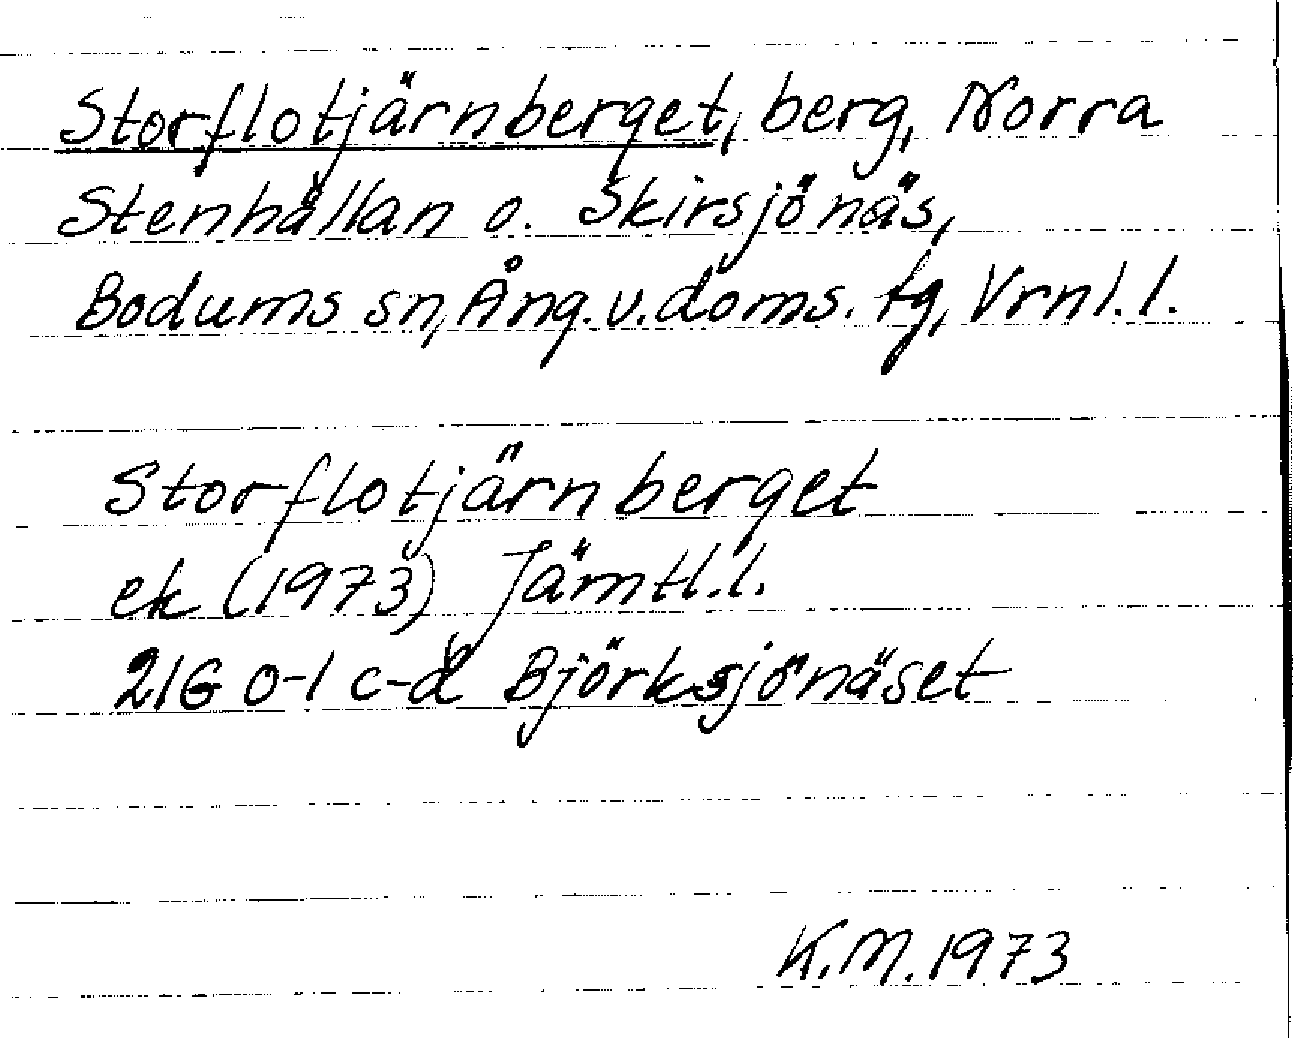 Storflotjärnberget, berg, Norra
Stenhällan o. Skirsjönäs,
Bodums sn, Ång. v. doms. tg, Vrnl. l.
Storflotjärnberget
ek (1973) Jämtl. l.
21G 0-1 c-d Björksjönäset
K.M. 1973